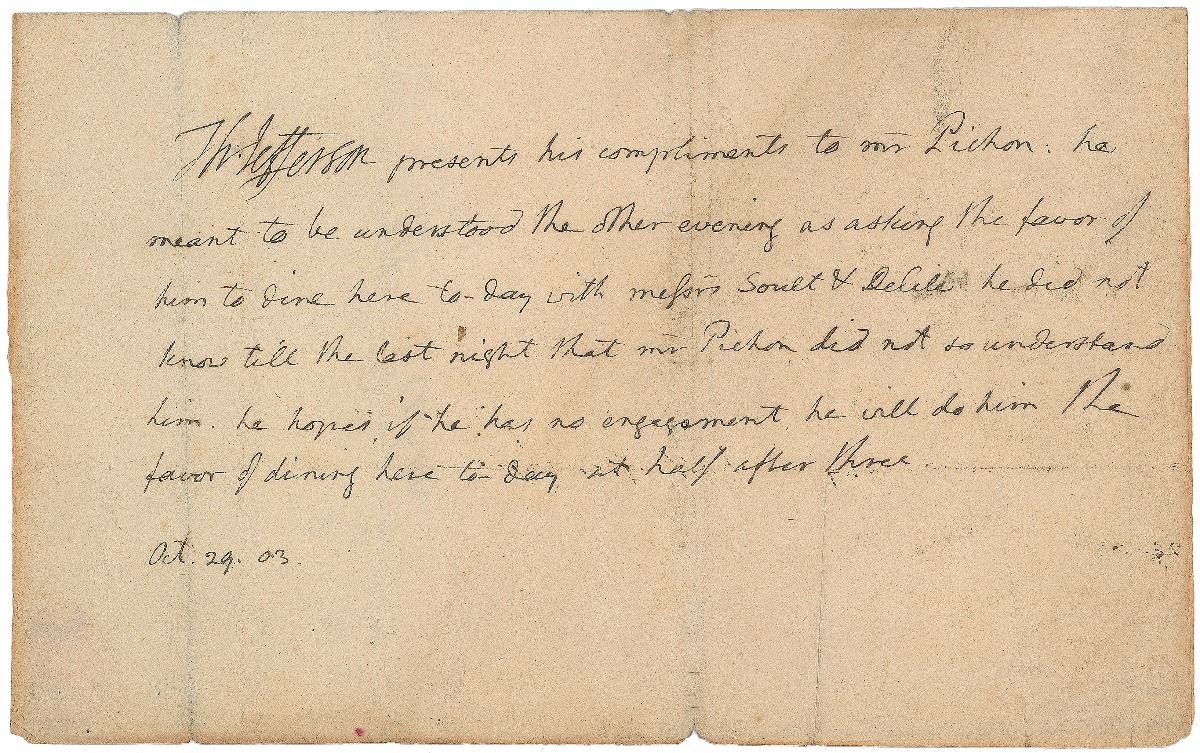 Th: Jefferson presents his compliments to mr Pichon. he
meant to be understood the other evening as asking the favor of
him to dine here to-day with messrs Soult & he did not
know till the last night that mr Pichon did not so understand
him. he hopes, if he has no engagement, he will do him the
favor of dining here to-day at half after three.
Oct. 29. 03.